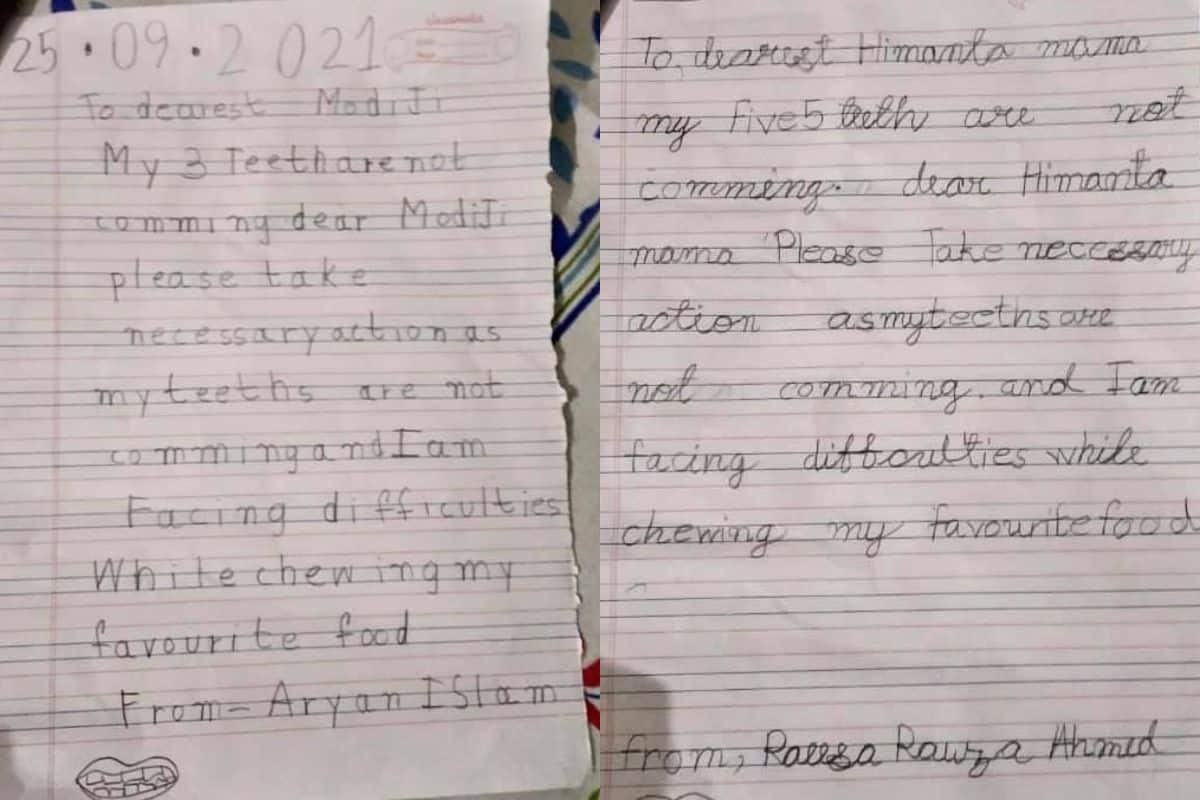 25.09.2021
To dearest ModiJi
My 3 Teeth are not
comming dear ModiJi
please take
necessary action as
my teeths are not
comming and I am
Facing difficulties
While chewing my
favourite food
From- Aryan ISlam
To, dearest Himanta mama
my five 5 teeth are not
comming. dear Himanta
mama Please Take necessary
action as my teeths are
not comming. and I am
facing difficulties while
chewing my favourite food
from, Raeesa Rawza Ahmed